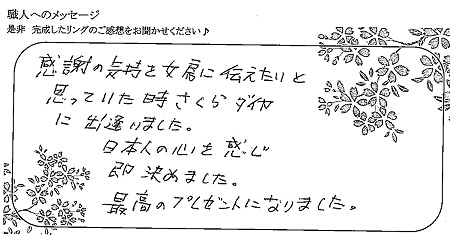 職人へのメッセージ
是非 完成したリングのご感想をお聞かせください♪
感謝の気持を女房に伝えたいと
思っていた時さくらダイヤ
に出逢いました。
日本人の心を感じ
即決めました。
最高のプレゼントになりました。